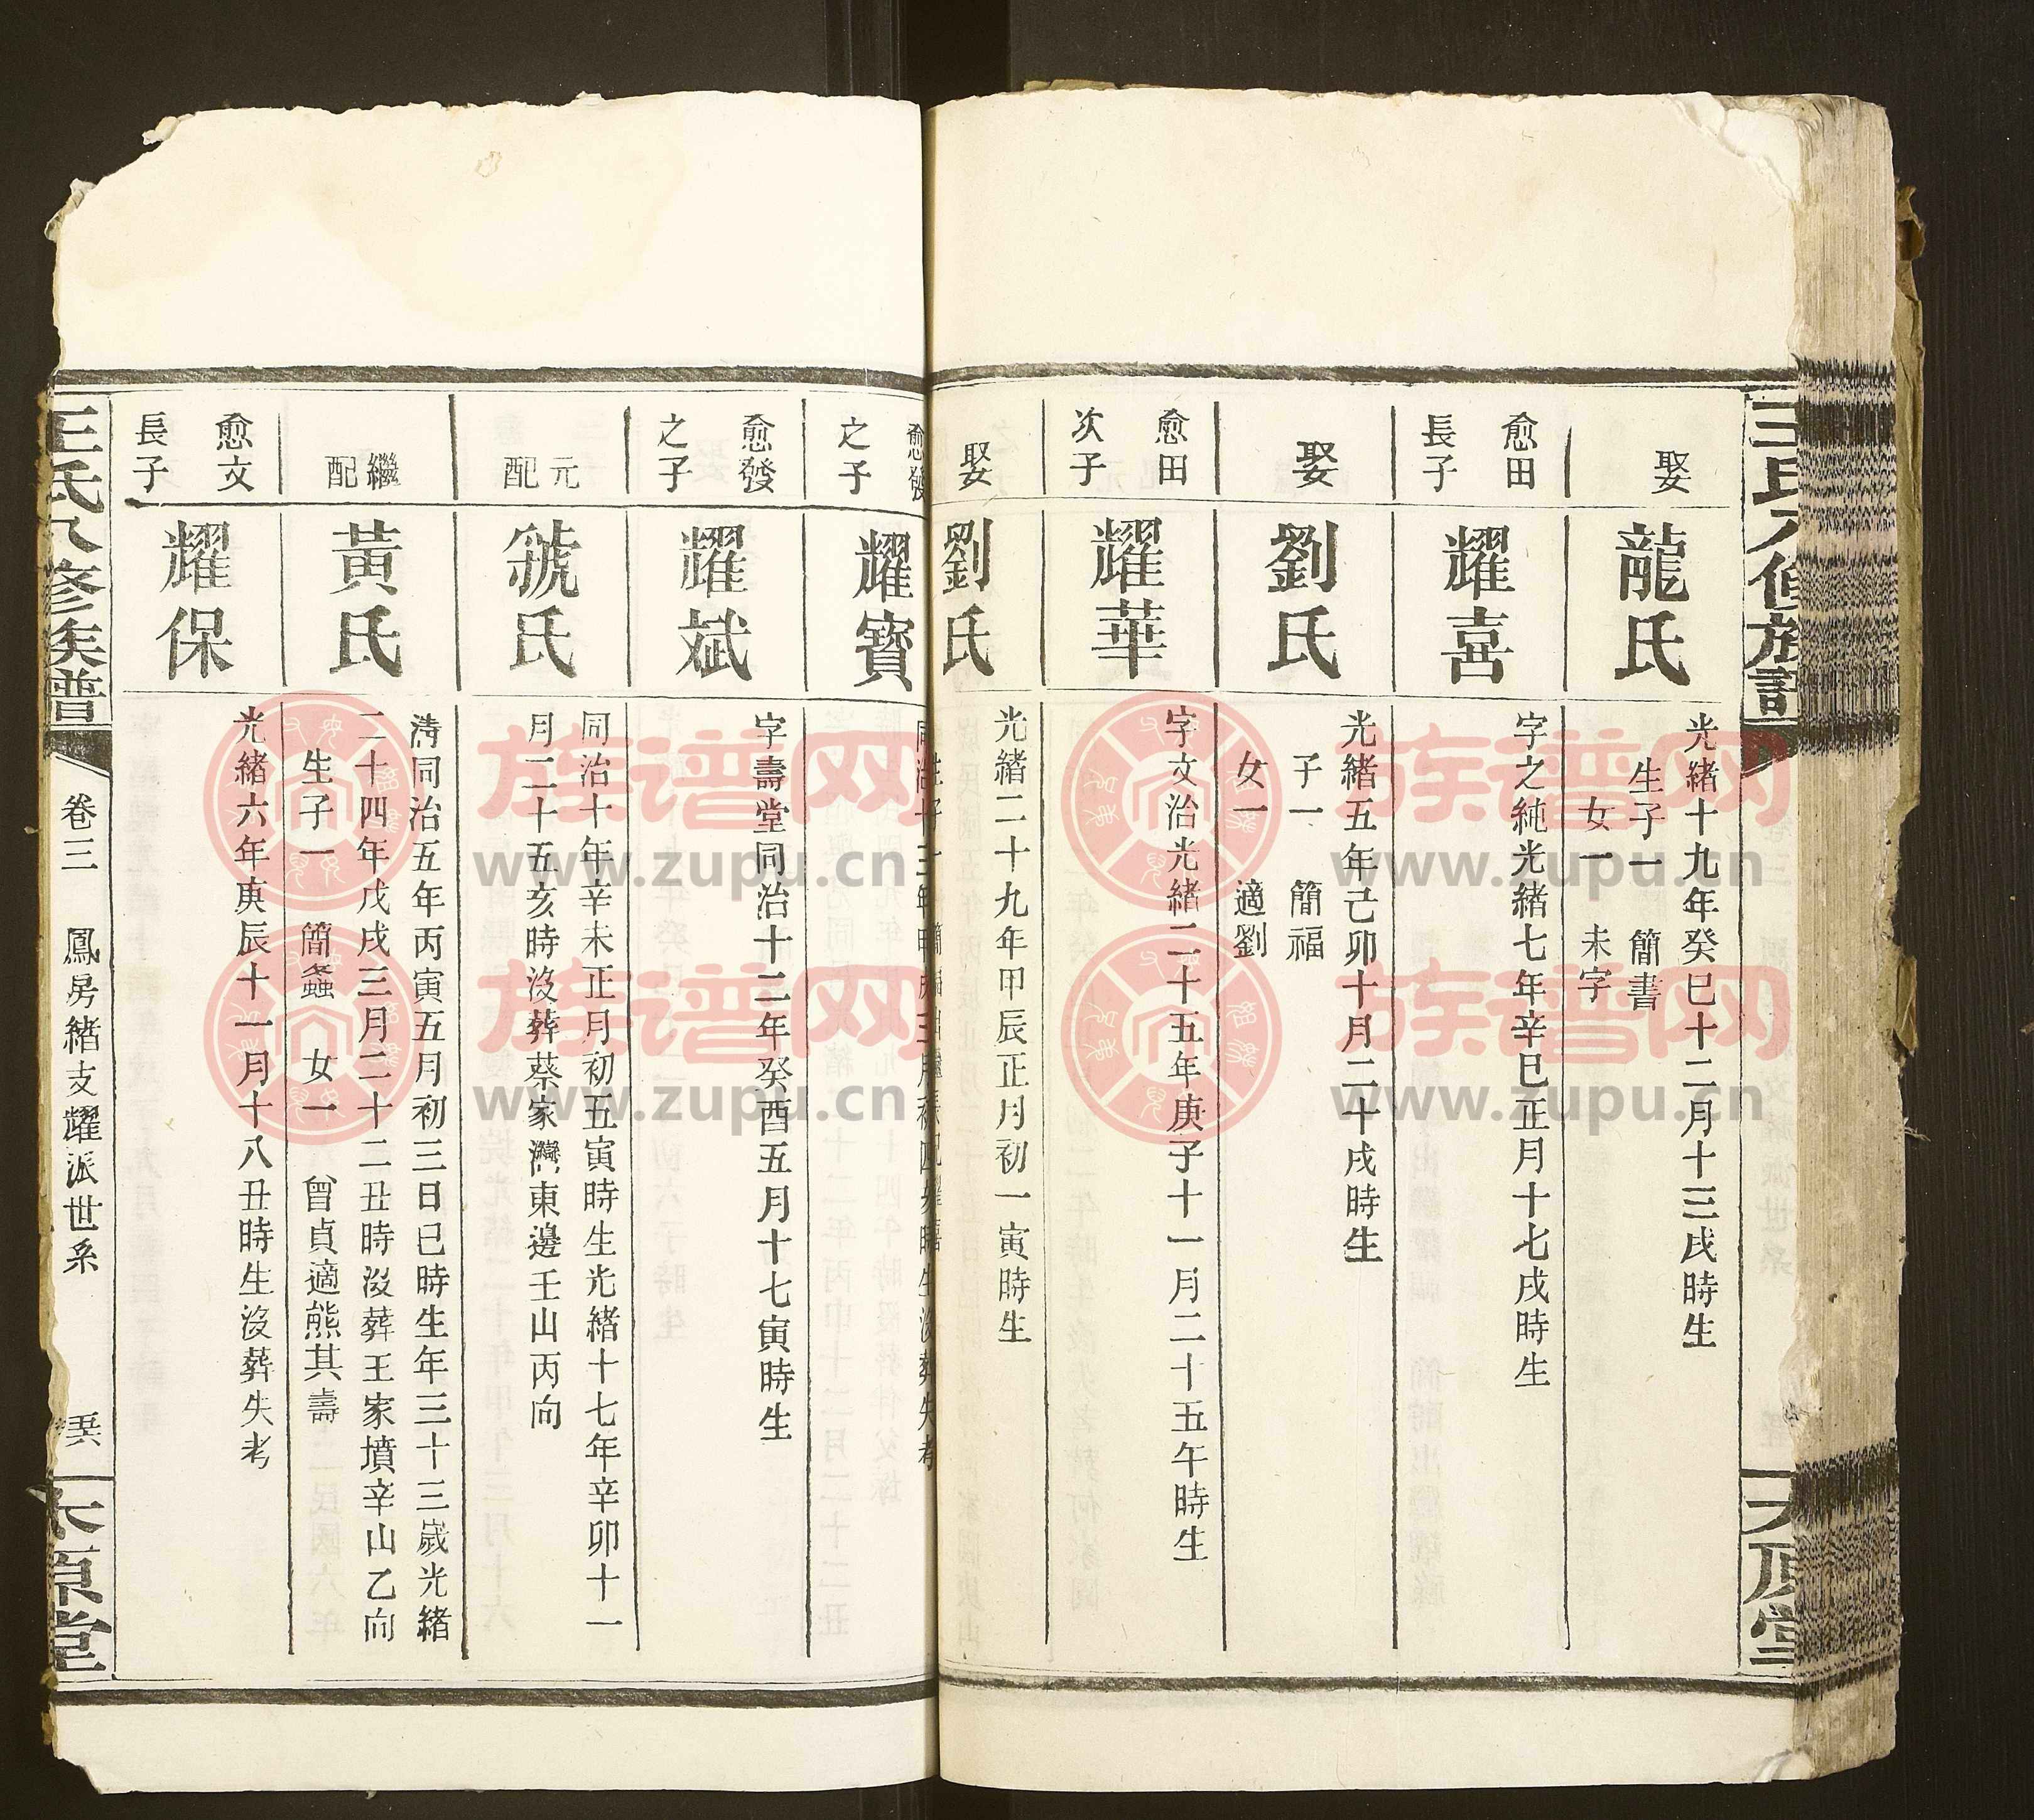 王氏八修族譜
太原堂
娶
龍氏
光緒十九年癸巳十二月十三戌時生
生子一 簡書
女一 未字
愈田
長子
耀喜
字之純光緒七年辛巳正月十七戌時生
娶
劉氏
光緒五年己卯十月二十戌時生
子一 簡福
女一 適劉
愈田
次子
耀華
字文治光緒二十五年庚子十一月二十五午時生
娶
劉氏
光緒二十九年甲辰正月初一寅時生
愈發
之子
耀寶
愈發
之子
耀斌
字壽堂同治十二年癸酉五月十七寅時生
元配
虢氏
同治十年辛未正月初五寅時生光緒十七年辛卯十一
月二十五亥時沒葬蔡家灣東邊壬山丙向
繼配
黃氏
清同治五年丙寅五月初三日巳時生年三十三歲光緒
二十四年戊戌三月二十二丑時沒葬王家墳辛山乙向
生子一 簡螽 女一 曾貞適熊其壽
愈文
長子
耀保
光緒六年庚辰十一月十八丑時生沒葬失考
王氏八修族譜
卷三 鳳房緒支耀派世系
太原堂
族谱网
www.zupu.cn
族谱网
www.zupu.cn
族谱网
www.zupu.cn
族谱网
www.zupu.cn